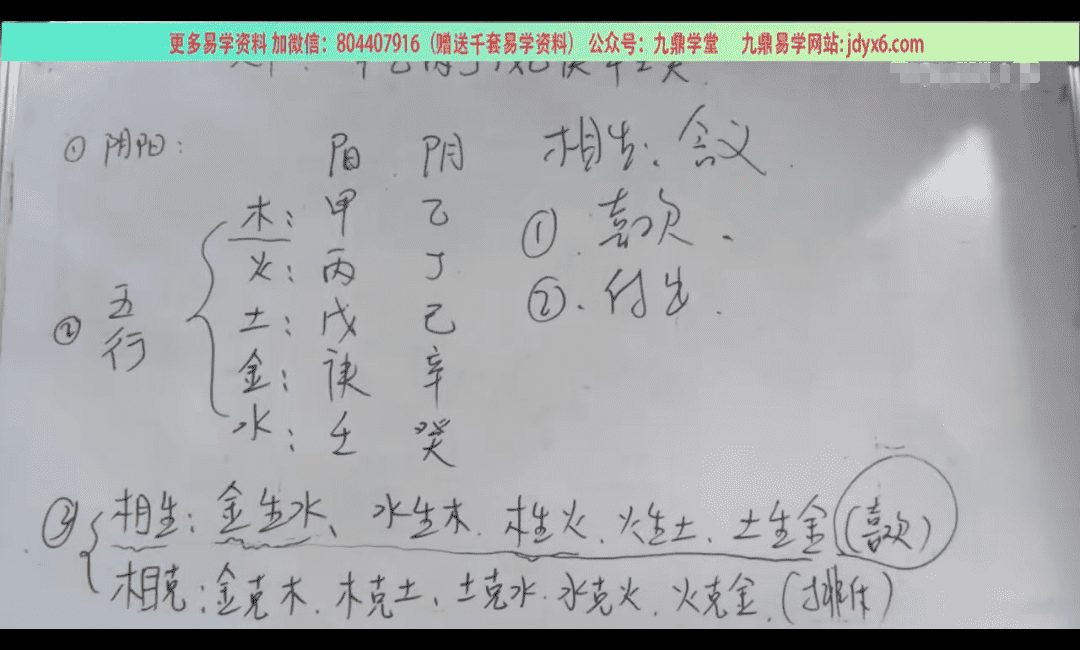 更多易学资料 加微信：804407916（赠送千套易学资料） 公众号：九鼎学堂 九鼎易学网站:jdyx6.com
① 阴阳： 阳 阴 相生：含义.
木：甲 乙 ①.喜欢.
火：丙 丁 ②.付出.
② 五行 土：戊 己
金：庚 辛
水：壬 癸
③ 相生：金生水、水生木.木生火、火生土、土生金(喜欢)
相克：金克木.木克土、土克水.水克火.火克金.(排斥)